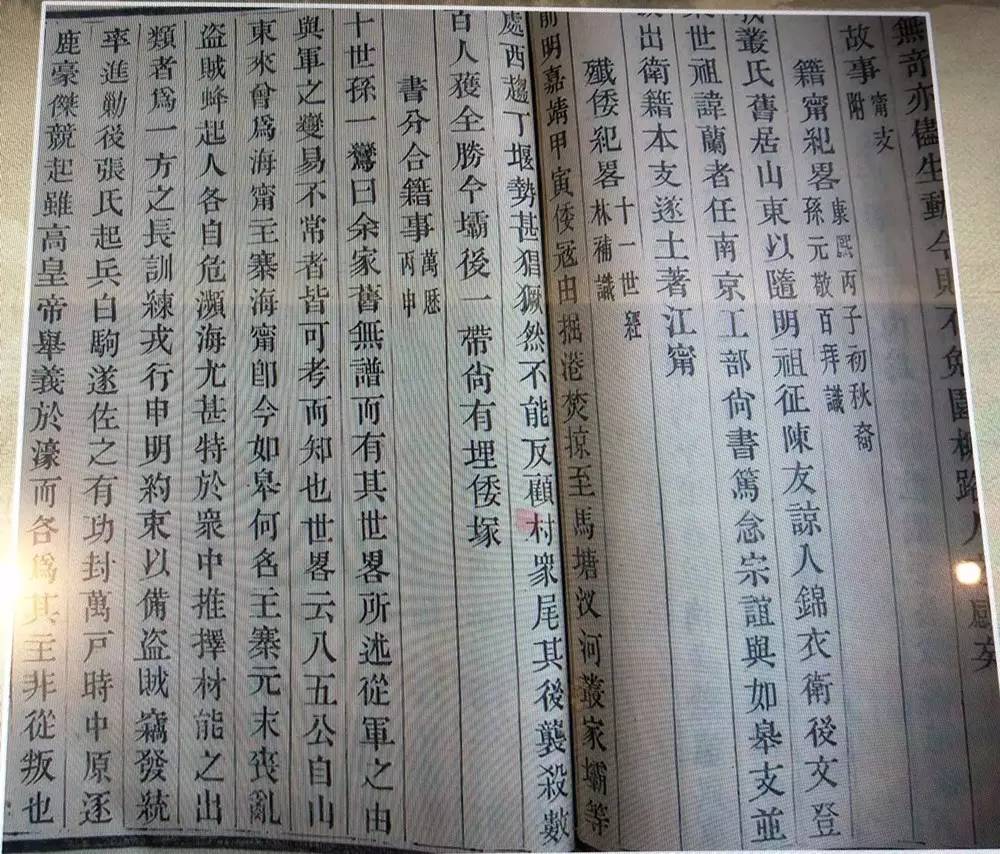 無奇亦儘生動今則不免園
故事附甯支
籍甯紀畧 康熙丙子初秋裔孫元敬百拜識
我叢氏舊居山東以隨明祖征陳友諒入錦衣衛後文登
世祖諱蘭者任南京工部尚書篤念宗誼與如皋支並
出衛籍本支遂土著江甯
殲倭紀畧 十一世經林補識
前明嘉靖甲寅倭冦由掘港焚掠至馬塘汊河叢家壩等
處西趨丁堰勢甚猖獗然不能反顧村衆尾其後襲殺數
百人獲全勝今壩後一帶尙有埋倭塚
書分合籍事 萬歷丙申
十世孫一鶚曰余家舊無譜而有其世畧所述從軍之由
與軍之變易不常者皆可考而知也世畧云八五公自山
東來會爲海甯王寨海甯卽今如皋何名王寨元末喪亂
盜賊蜂起人各自危瀕海尤甚特於衆中推擇材能之出
類者爲一方之長訓練戎行申明約束以備盜賊竊發統
率進勦後張氏起兵白駒遂佐之有功封萬戸時中原逐
鹿豪傑競起雖高皇帝舉義於濠而各爲其主非從叛也